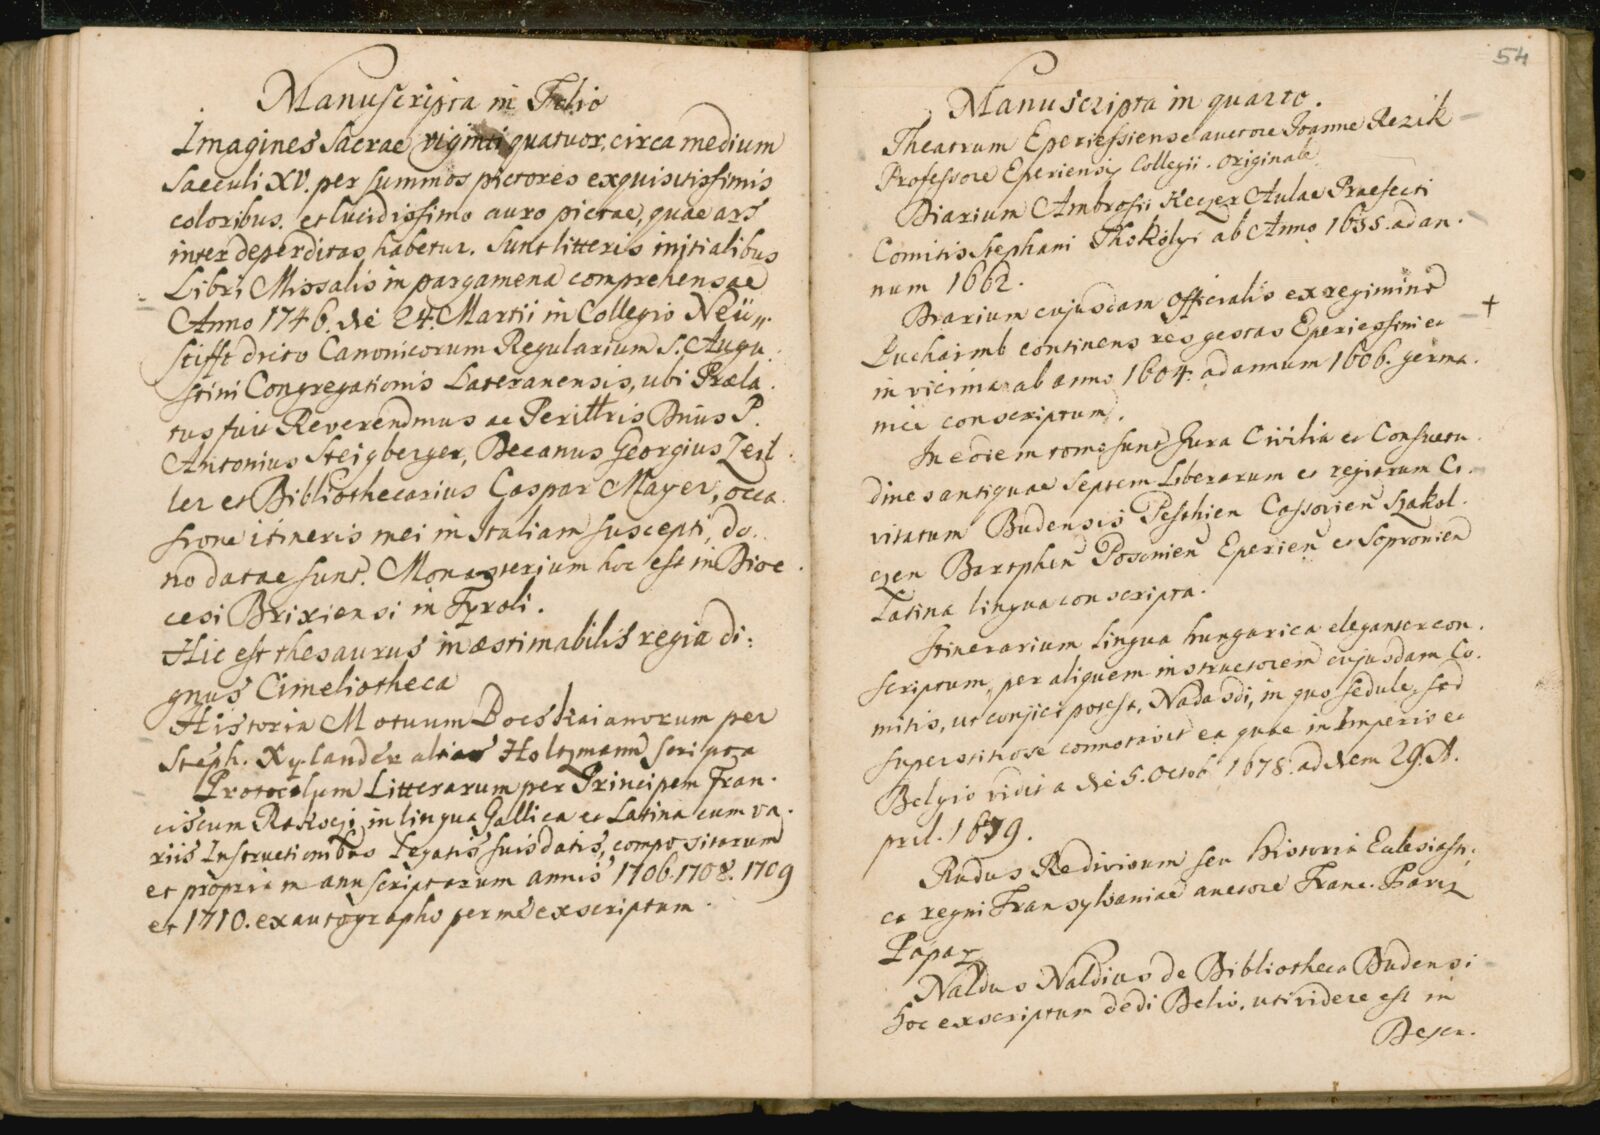 Manuscripta in Folio
Imagines Sacrae viginti quatuor, circa medium
Saeculi XV. per summos pictores exquisitissimis
coloribus. et lucidissimo auro pictae, quae ars
inter deperditas, habetur. Sunt litteris initialibus
Libri Missalis in pargamena comprehensae
Anno 1746. die 24. Martii in Collegio Neü„
stifft dicto Canonicorum Regularium S. Augu.
stini Congregationis Lateranensis, ubi Præla.
tus fuit Reverendmus ac Perillris Dnus P.
Antonius Steigberger, Decanus Georgius Zeil.
ler et Bibliothecarius Caspar Mayer, occa.
sione itineris mei in Italiam suscepti, do..
no datae sunt. Monasterium hoc est in Dioe.
cesi Brixiensi in Tyroli.
Hic est thesaurus inæstimabilis regia di:
gnus Cimeliotheca
Historia Motuum Bocskaianorum per
Steph. Xylander alias Holtzmann scripta
Protocolum Litterarum per Principem Fran.
ciscum Rakoczi in lingua Gallica et Latina cum va.
riis Instructionibus Legatis suis datis, compositarum
et propria manu scriptarum annis 1706. 1708. 1709
et 1710. ex autographo per me exscriptum.
54
Manuscripta in quarto.
Theatrum Eperiessiense auctore Joanne Rezik
Professore Eperiensis Collegii. Originale
Diarium Ambrosii Keczer Aulae Praefecti
Comitis Stephani Thököly ab Anno 1655. ad an.
num 1662.
Diarium cujusdam Officialis ex regimine
Puchaimb continens res gestas Eperiessini et
in vicinia ab anno 1604. ad annum 1606. germa.
nice conscriptum.
In eodem tomo sunt Jura Civilia et Consuetu.
dines antiquae Septem Liberarum et regiarum Ci.
vitatum Budensis Pesthien Cassovien Szakol.
czen Bartphen Posonien Eperien et Sopronien
Latina lingua conscripta.
Itinerarium lingua hungarica eleganter con.
scriptum, per aliquem instructorem cujusdam Co.
mitis, ut conjici potest, Nadasdi, in quo sedule, sed
superstitiose connotavit ea quae in Imperio et
Belgio vidit a die 5. Octob. 1678. ad diem 29. A.
pril. 1679.
Rudus Redivivum seu Historia Eclesiasti.
ca regni Transylvaniae auctore Franc. Pariz
Papaz
Naldus Naldius de Bibliotheca Budensi
hoc exscriptum dedi Belio, uti videre est in
Descr.